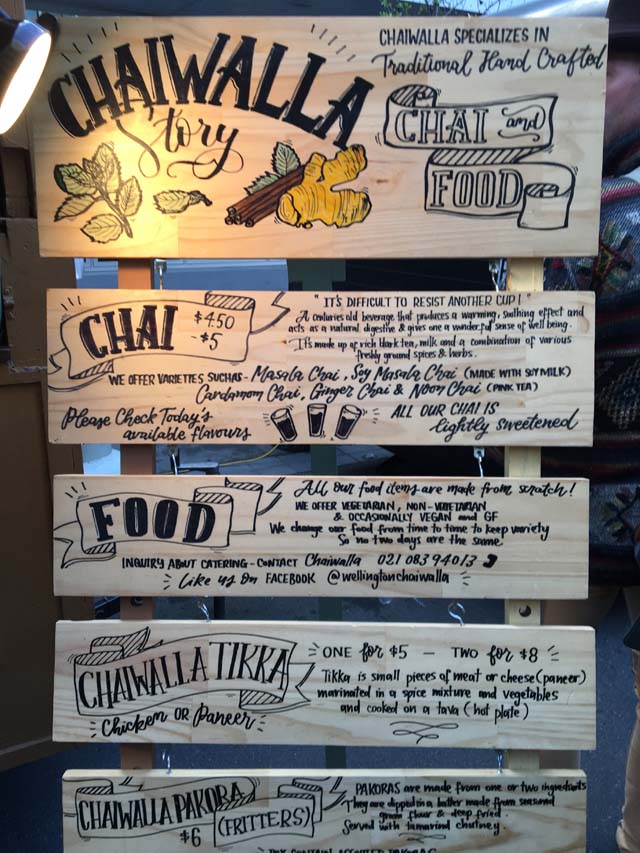 CHAIWALLA
Story
CHAIWALLA SPECIALIZES IN
Traditional Hand Crafted
CHAI and
FOOD
CHAI
$4.50
-$5
"IT'S DIFFICULT TO RESIST ANOTHER CUP!"
A centuries old beverage that produces a warming, soothing effect and
acts as a natural digestive & gives one a wonderful sense of well being.
It's made up of rich black tea, milk and a combination of various
freshly ground spices & herbs.
WE OFFER VARIETIES SUCH AS - Masala Chai, Soy Masala Chai (MADE WITH SOY MILK)
Cardamom Chai, Ginger Chai & Noon Chai (PINK TEA)
Please Check Today's
available flavours
ALL OUR CHAI IS
lightly sweetened
FOOD
All our food items are made from scratch!
WE OFFER VEGETARIAN, NON-VEGETARIAN
& OCCASIONALLY VEGAN and GF
We change our food from time to time to keep variety
So no two days are the same
INQUIRY ABOUT CATERING - CONTACT Chaiwalla 021 083 94013
Like us on FACEBOOK @wellingtonchaiwalla
CHAIWALLA TIKKA
Chicken OR Paneer
ONE for $5 - TWO for $8
Tikka is small pieces of meat or cheese (paneer)
marinated in a spice mixture and vegetables
and cooked on a tava (hot plate)
CHAIWALLA PAKORA
(FRITTERS)
$6
PAKORAS are made from one or two ingredients
They are dipped in a batter made from seasoned
gram flour & deep fried.
Served with tamarind chutney.